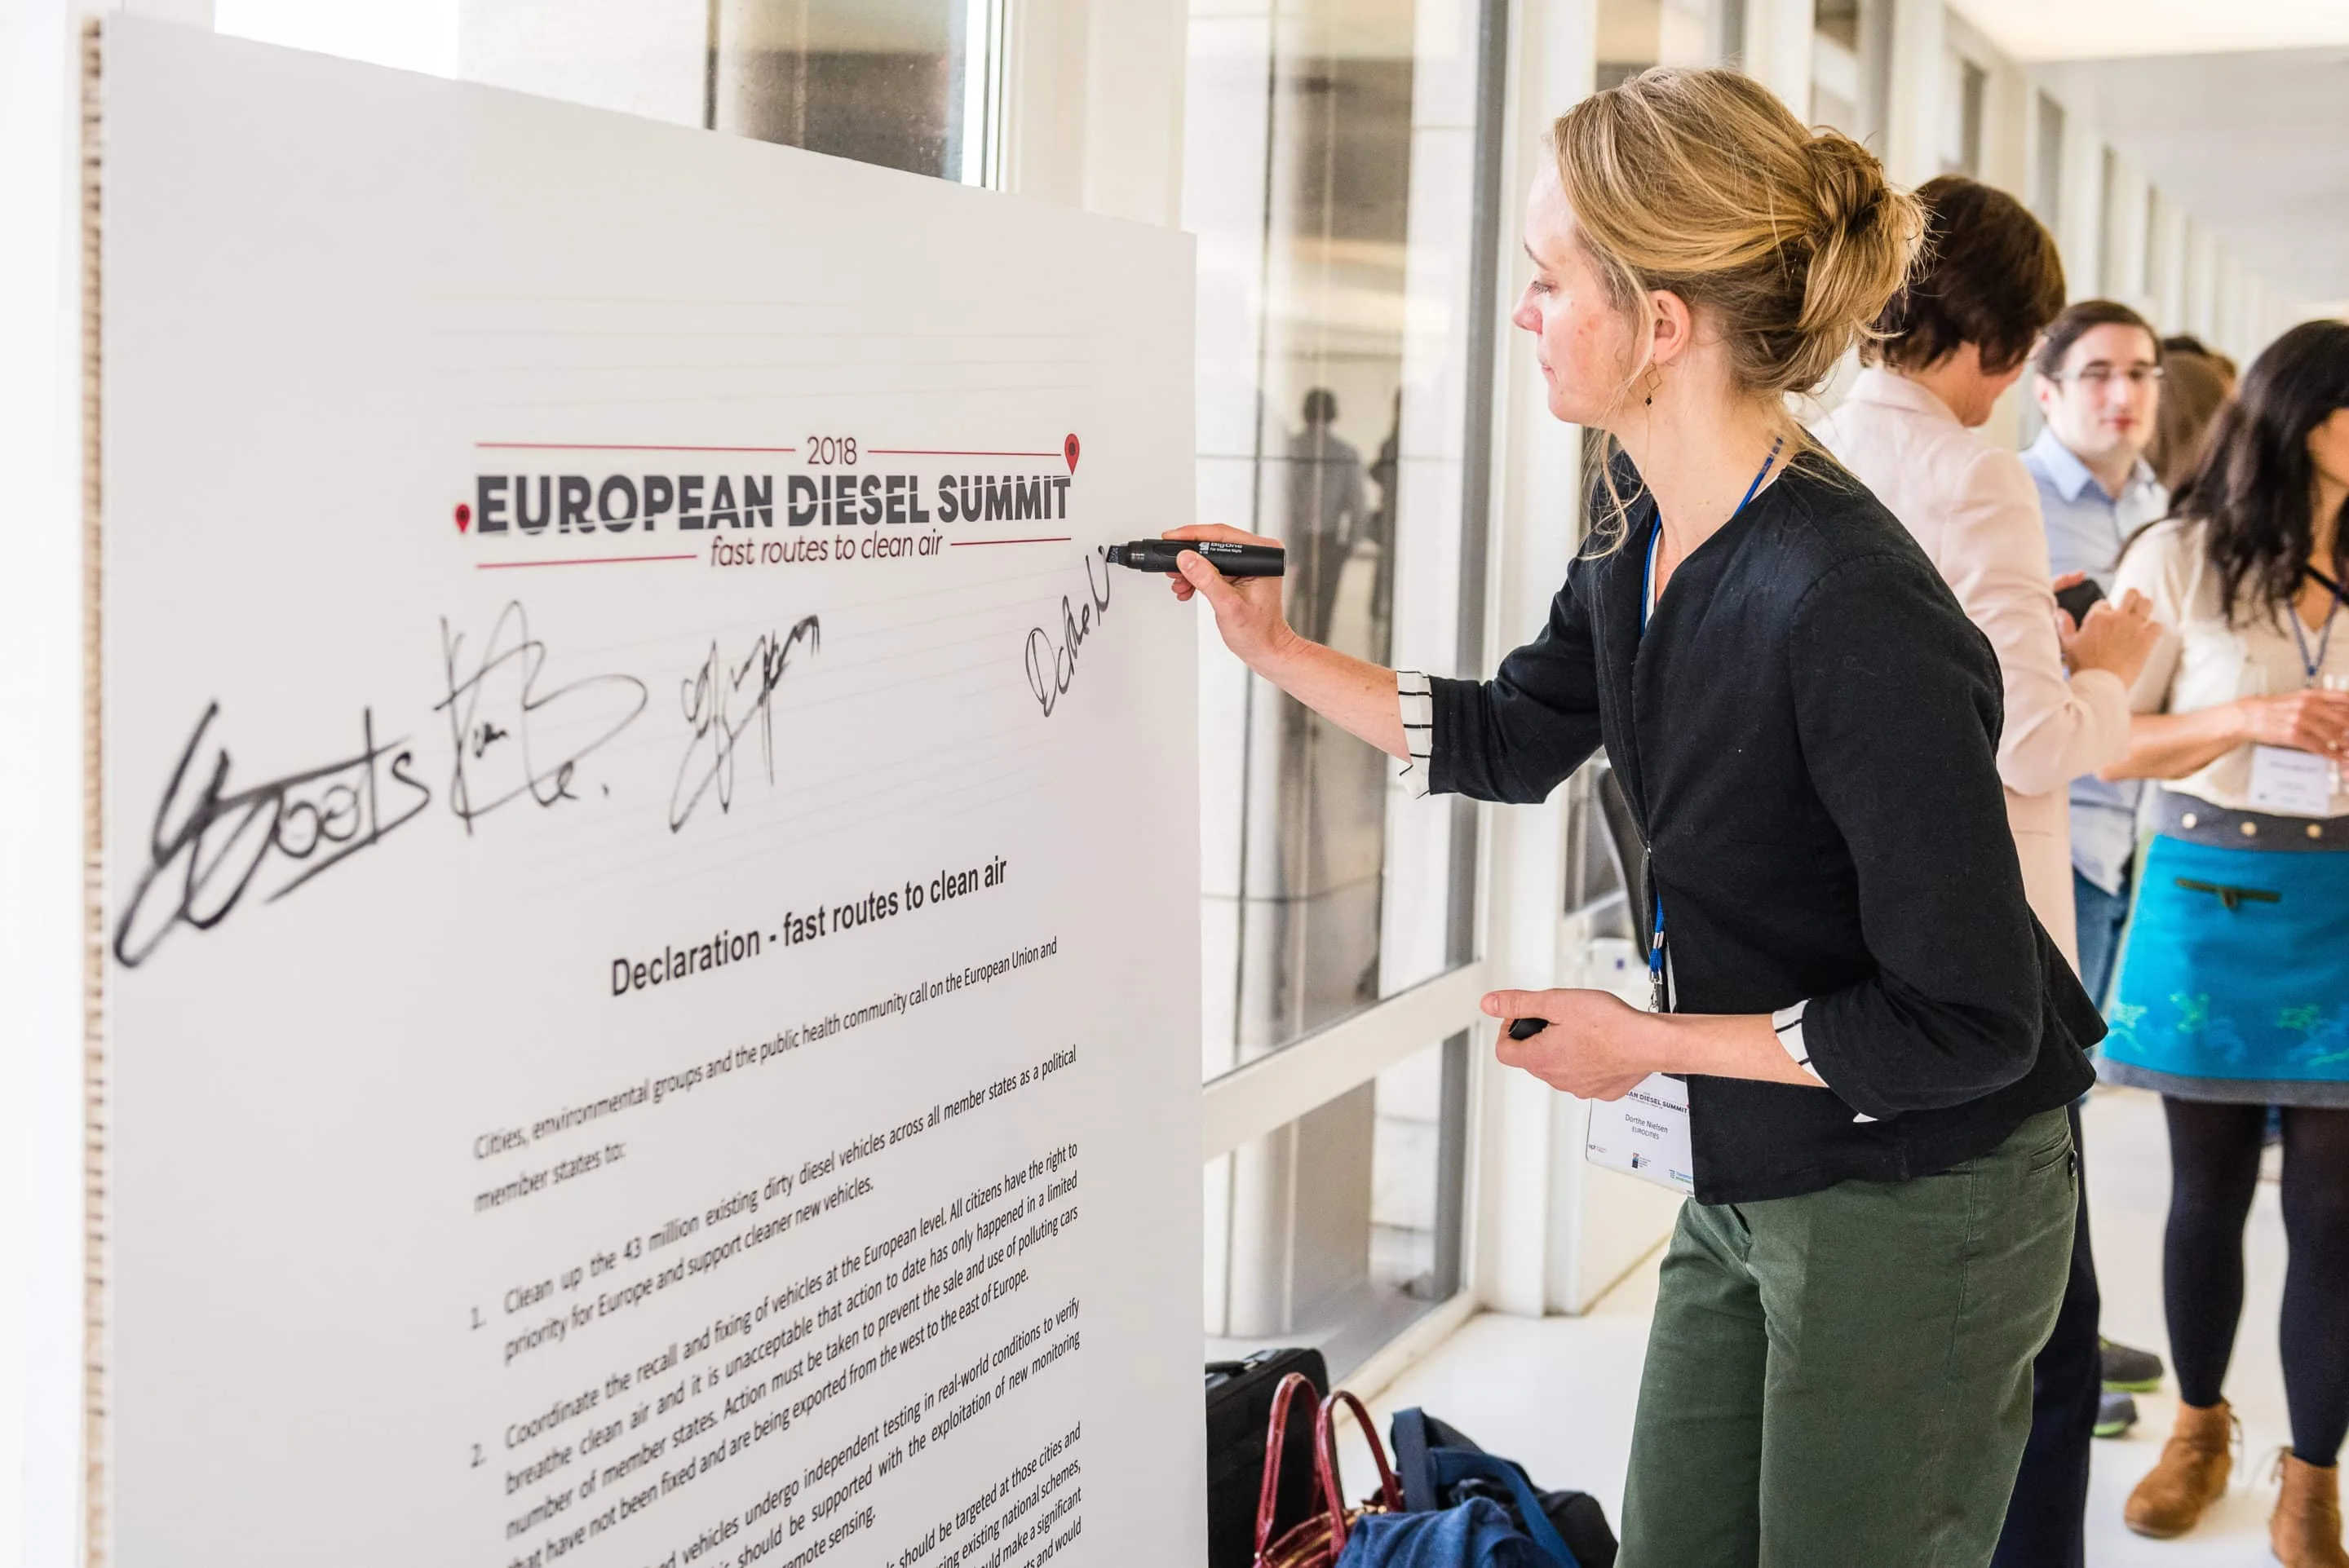 2018
EUROPEAN DIESEL SUMMIT
fast routes to clean air
Declaration - fast routes to clean air
Cities, environmental groups and the public health community call on the European Union and
member states to:
1. Clean up the 43 million existing dirty diesel vehicles across all member states as a political
priority for Europe and support cleaner new vehicles.
2. Coordinate the recall and fixing of vehicles at the European level. All citizens have the right to
breathe clean air and it is unacceptable that action to date has only happened in a limited
number of member states. Action must be taken to prevent the sale and use of polluting cars
that have not been fixed and are being exported from the west to the east of Europe.
vehicles undergo independent testing in real-world conditions to verify
should be supported with the exploitation of new monitoring
remote sensing.
should be targeted at those cities and
existing national schemes,
make a significant
and would
EAN DIESEL SUMMIT
Dorthe Nielsen
EUROCITIES